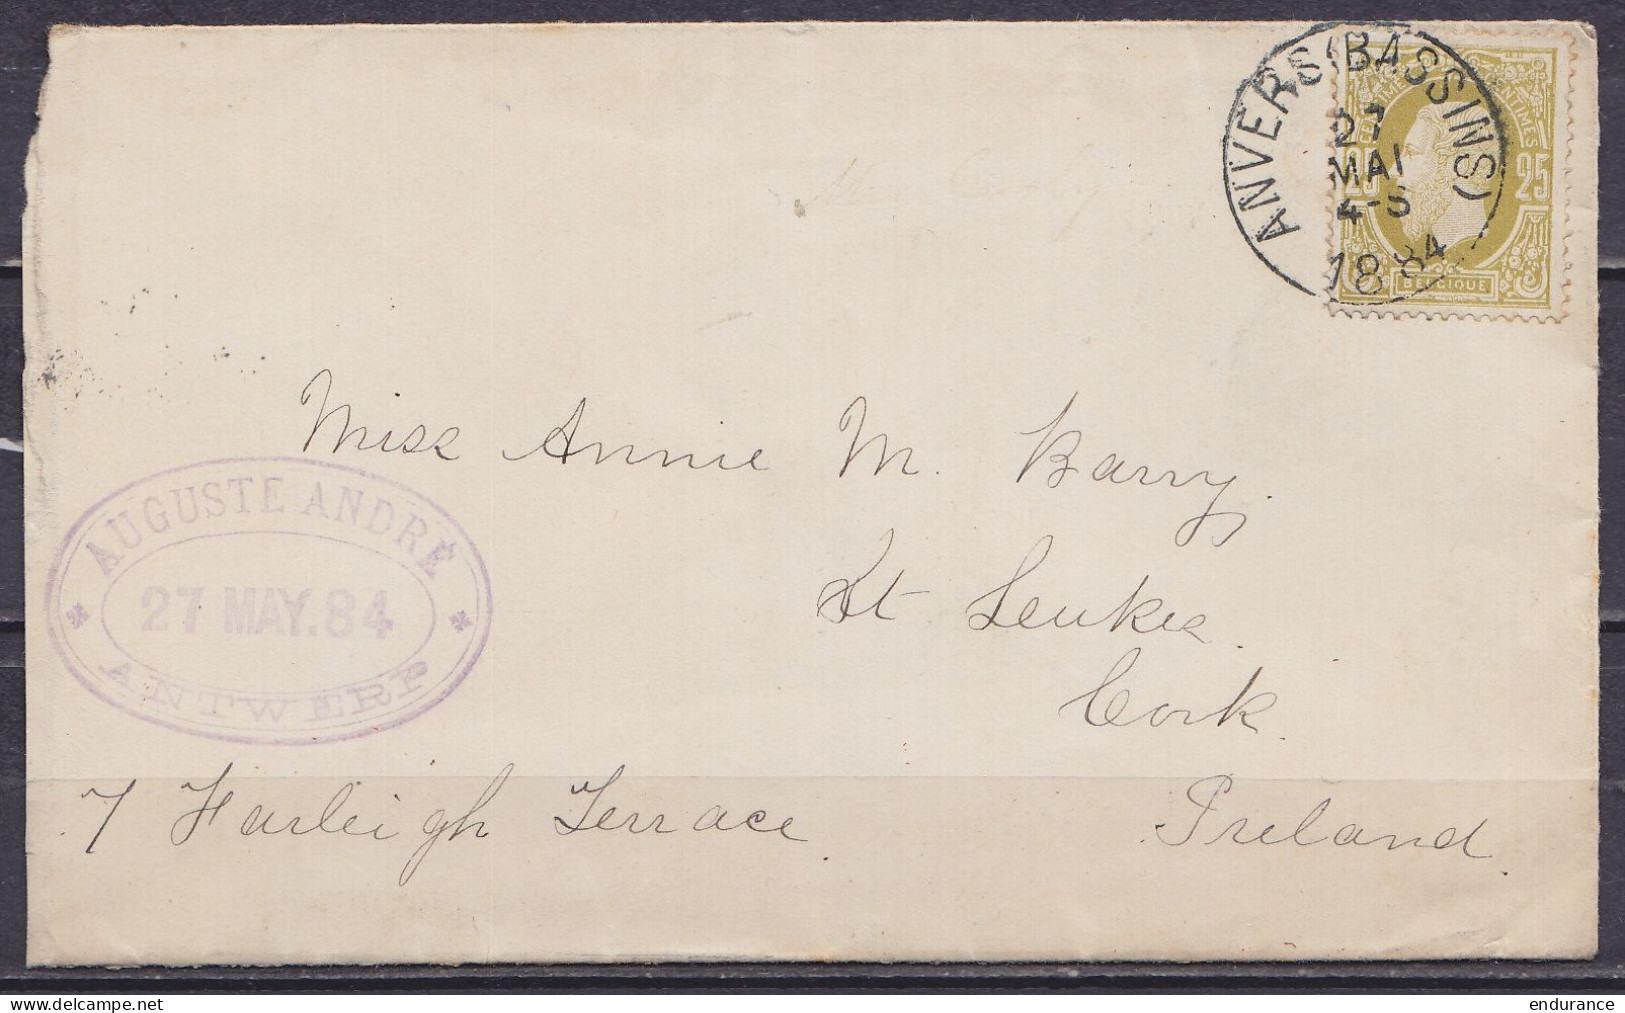 ANVERS (BASSINS)
27
MAI
4-S
1884
CENTIMES CENTIMES
25 25
BELGIQUE
Miss Annie M. Barry.
St Leukes.
Cork.
Ireland.
7 Farleigh Terrace.
AUGUSTE ANDRÉ
27 MAY. 84
ANTWERP
delcampe.net
endurance